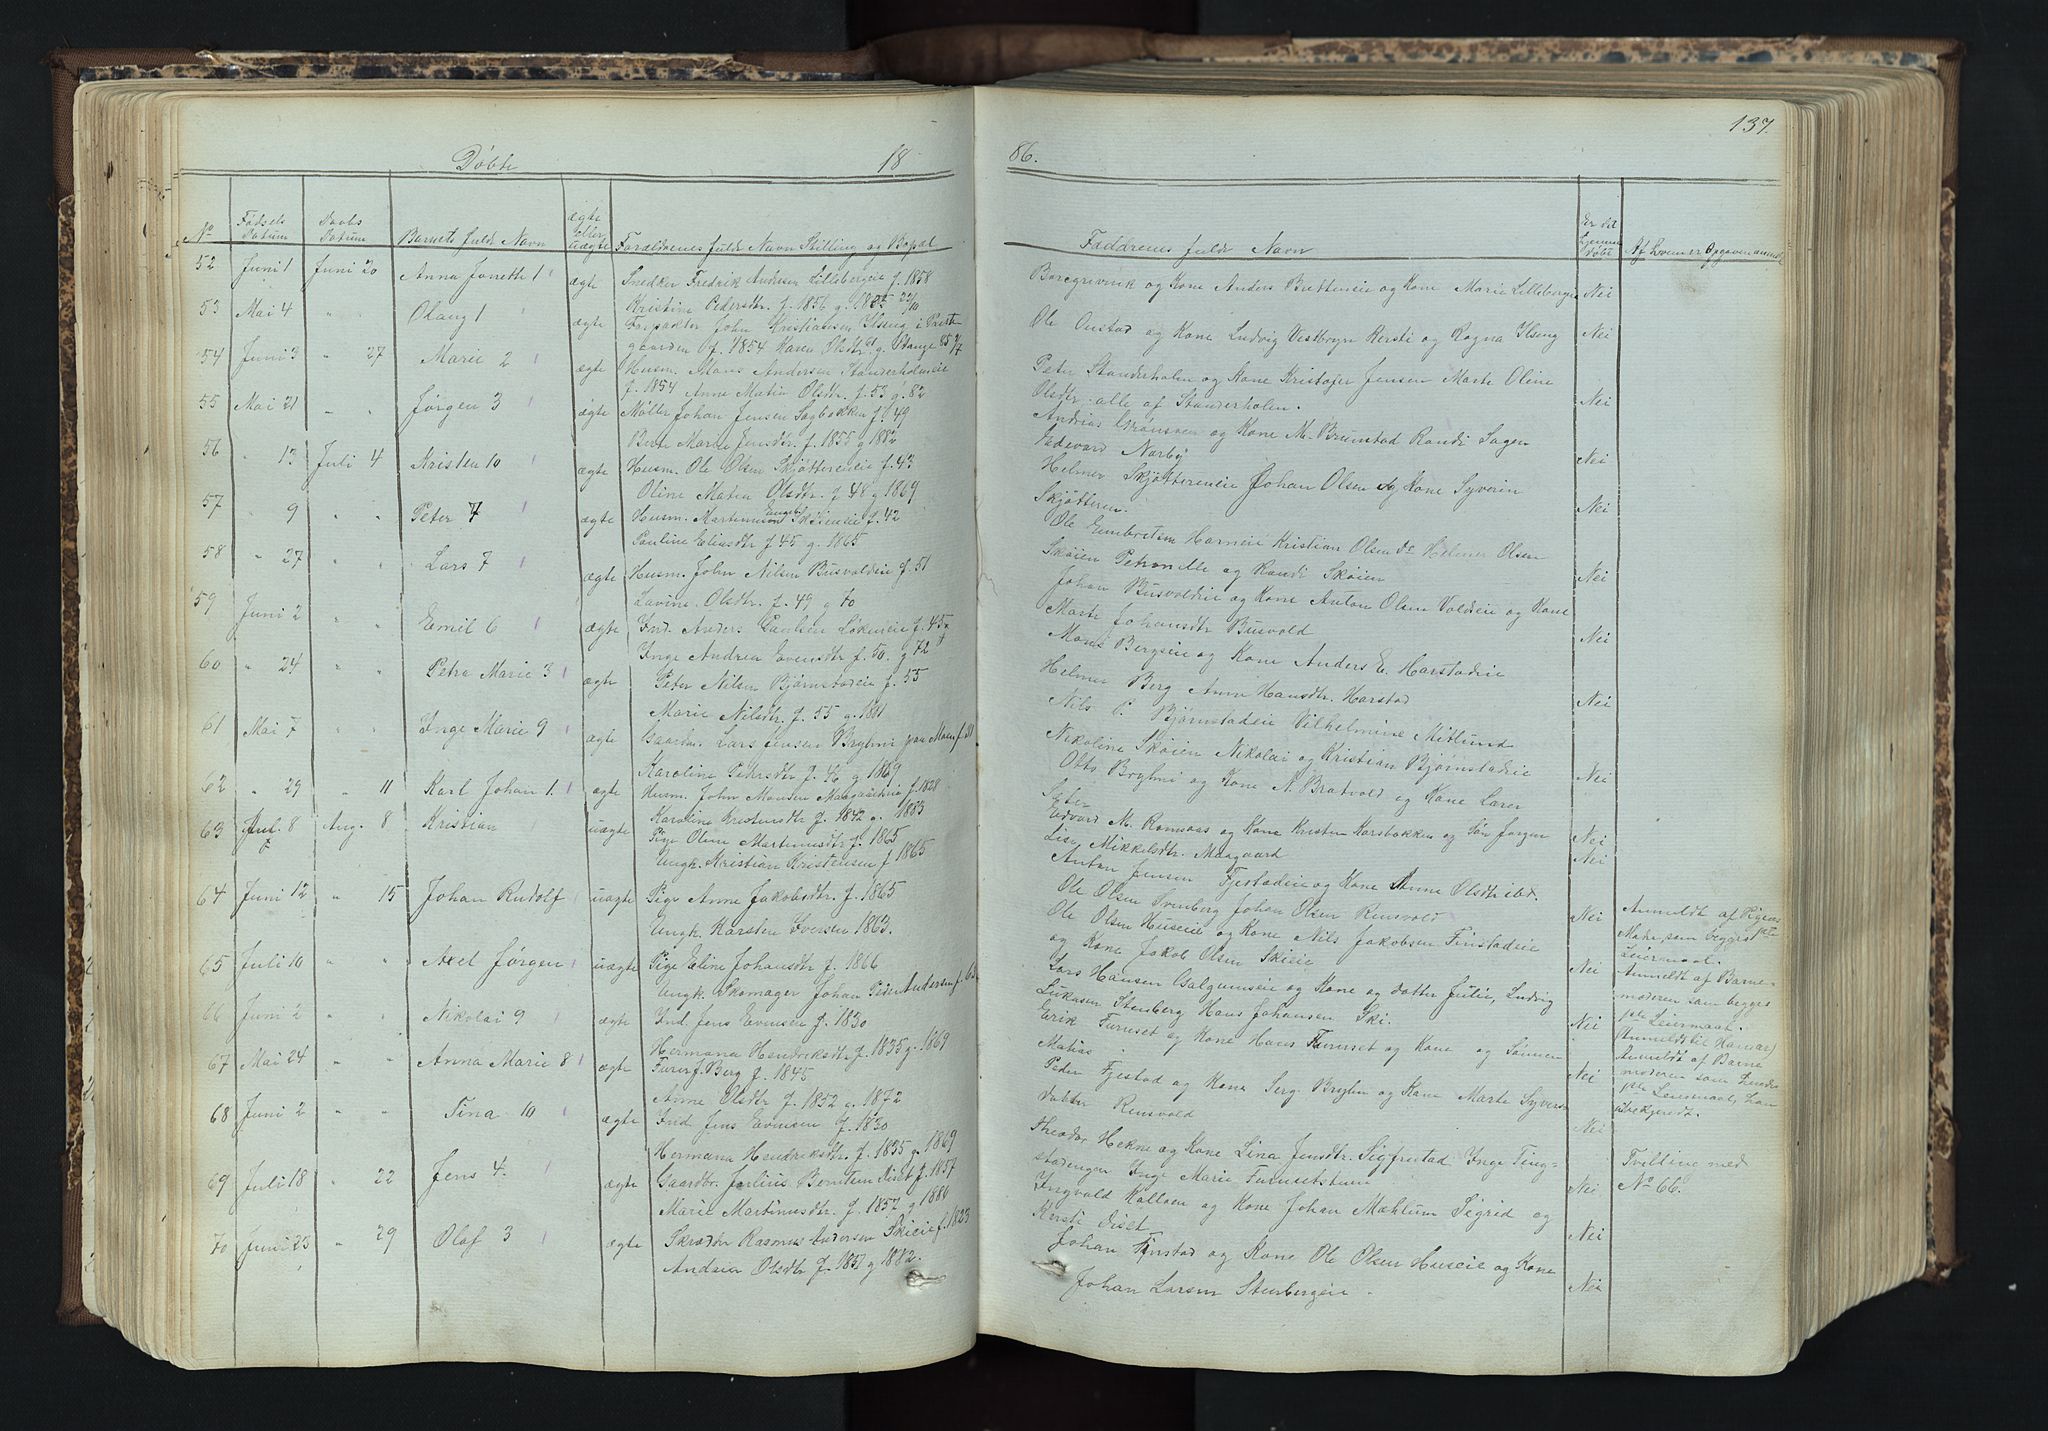 137.
Døbte 18
86.
No
Fødsels Datum
Daabs Datum
Barnets fulde Navn
ægte eller uægte
Forældrenes fulde Navn Stilling og Bopæl
Faddrenes fulde Navn
Er det hjemme døbt
52 Juni 1 Juni 20 Anna Jonette 1 ægte Snedker Fredrik Andersen Lillebergeie f. 1858
Kristine Pedersdtr. f. 1856 g. 1885 22/10
Borregrevink og Kone Anders Bretteneie og Kone Marie Lillebergeie Nei
53 Mai 4 " " Olaug 1 ægte Forpakter John Kristiansen Ilseng i Preste
gaarden f. 1854 Karen Olsdtr. g. Stange 85
Ole Onstad og Kone Ludvig Vestbryn Kersti og Ragna Ilseng Nei
54 Juni 3 " 27 Marie 2 ægte Husm. Mons Andersen Standerholeneie
f. 1854 Anne Matia Olsdtr. f. 53 g. 82
Peter Standerholen og Kone Kristofer Jensen Marte Oline
Olsdtr. alle af Standerholen. Nei
55 Mai 21 " " Jørgen 3 ægte Møller Johan Jensen Sagbakken f. 49
Berte Marie Jensdtr. f. 1855 g 1882
Andreas Grønsveen og Kone M. Brunstad Randi Sagen
Edevard Narby Nei
56 " 13 Juli 4 Kristen 10 ægte Husm. Ole Olsen Skjøttereneie f. 43
Oline Matea Olsdtr. f. 48 g 1869
Helmer Skjøttereneie Johan Olsen og Kone Syverin
Skjøtteren. Nei
57 " 9 " " Peter 7 ægte Husm. Martinusen Skøieneie f. 42
Pauline Eliasdtr f. 45 g. 1865
Ole Embretsen Horneie Kristian Olsen Helmer Olsen
Skøien Petronelle og Randi Skøien Nei
58 " 27 " " Lars 7 ægte Husm. John Nilsen Busvoldeie f. 51
Lavine Olsdtr. f. 49 g 70
Johan Busvoldeie og Kone Anton Olsen Voldeie og Kone
Marte Johansdtr Busvold Nei
59 Juni 2 " " Emil 6 ægte Ind. Anders Paulsen Løkeneie f. 45
Inge Andrea Evensdtr f. 50. g 72
Mons Bergseie og Kone Anders E. Harstadeie
Helmer Berg Anne Hansdtr. Harstad Nei
60 " 24 " " Petra Marie 3 ægte Peter Nilsen Bjørnstadeie f. 55
Marie Nilsdtr. f. 55 g. 1881
Nils P. Bjørnstadeie Vilhelmine Mitlund
Nikoline Skøien Nikolai og Kristian Bjørnstadeie Nei
61 Mai 7 " " Inge Marie 9 ægte Gaardbr. Lars Jensen Bryhni paa Moen
Karoline Petersdtr f. 46 g 1869
Otto Bryhni og Kone N. Bratvold og Kone Laren
Seter
62 " 29 " 11 Karl Johan 1. ægte Husm. John Monsen Maagaardeie f. 1828
Karoline Kristensdtr f. 1842 g. 1883
Edvard M. Romsaas og Kone Kristen Korsbakken og Søn Jørgen Nei
Lise Mikkelsdtr. Maagaard Nei
63 Juli 8 Aug. 8 Kristian uægte Pige Oline Martinusdtr f. 1865
Ungk. Kristian Kristensen f 1865
Anton Jensen Fjestadeie og Kone Anne Olsdtr ibd.
Ole Olsen Svenberg Johan Olsen Rensvold Nei
64 Juni 12 " 15 Johan Rudolf uægte Pige Anne Jakobsdtr. f. 1865
Ungk. Karsten Iversen 1863.
Ole Olsen Huseie og Kone Nils Jakobsen Finstadeie
og Kone Jakob Olsen Skieie Nei
Anmeldt af Pigens
Moder, som begges 1ste
Leiermaal.
65 Juli 10 " " Axel Jørgen uægte Pige Eline Johansdtr f. 1866
Ungk. Skomager Johan Peder Andersen
Lars Hansen Galgumseie og Kone og datter Julie, Ludvig
Lukasen Stenberg Hans Johansen Ski. Nei
Anmeldt af Barne-
moderen som begges
1ste Leiermaal.
(Anmeldt til Hamar)
66 Juni 2 " " Nikolai 9 ægte Ind. Jens Evensen f. 1830
Hermana Hendriksdtr f. 1835 g. 1869
Erik Furuset og Kone Hans Furuset og Kone og Sønnen
Matias Nei
Anmeldt af Barne
moderen som
1ste Leiermaal, han
ubekjendt.
67 Mai 24 " " Anna Marie 8 ægte Furer J. Berg f. 1845
Anne Olsdtr f. 1852 g. 1872
Peder Fjestad og Kone Serg. Bryhn og Kone Marte Syvers
datter Rensvold Nei
68 Juni 2 " " Tina 10 ægte Ind. Jens Evensen f. 1830
Hermana Hendriksdtr. f. 1835 g 1869
Theodor Hekne og Kone Lina Jensdtr. Sigfrestad Inge Ting-
stadengen Inge Marie Furusetstuen Nei
Tvilling med
No 66.
69 Juli 18 " 22 Jens 4. ægte Gaardbr. Julius Berntsen Diset f. 1857
Marie Martinusdtr. f. 1857 g 1880
Ingvald Kolloen og Kone Johan Mæhlum Sigrid og
Kersti Diset Nei
70 Juni 23 " 29 Olaf 3 ægte Skrædder Rasmus Andersen Skieie f. 1823
Andrea Olsdtr f. 1857 g 1882.
Johan Finstad og Kone Ole Olsen Huseie og Kone
Johan Larsen Stenbergeie. Nei